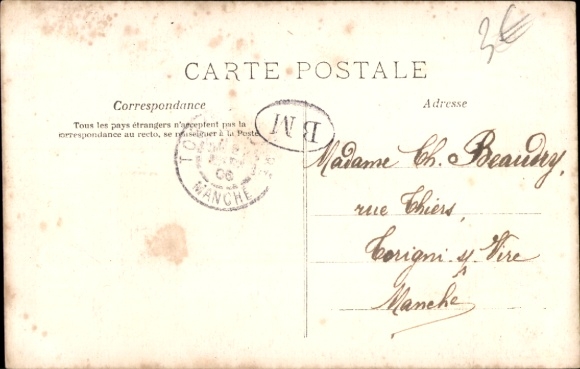 3€
CARTE POSTALE
Correspondance
Tous les pays étrangers n'acceptent pas la
correspondance au recto, se renseigner à la Poste.
Adresse
BM
06
MANCHE
Madame Ch. Beaudry,
rue Thiers,
Torigni s/ Vire
Manche